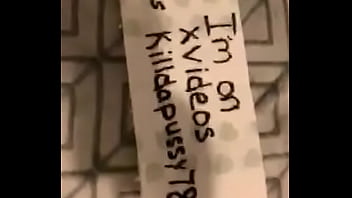 I'm on
xvideos
s Killdapussy78